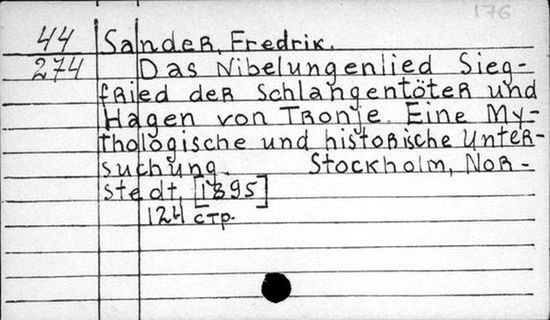 176
44 Sander, Fredrik.
274 Das Nibelungenlied Sieg-
fried der Schlangentöter und
Hagen von Tronje. Eine My-
thologische und historische Unter-
suchung. Stockholm, Nor-
stedt, [1895]
124 стр.